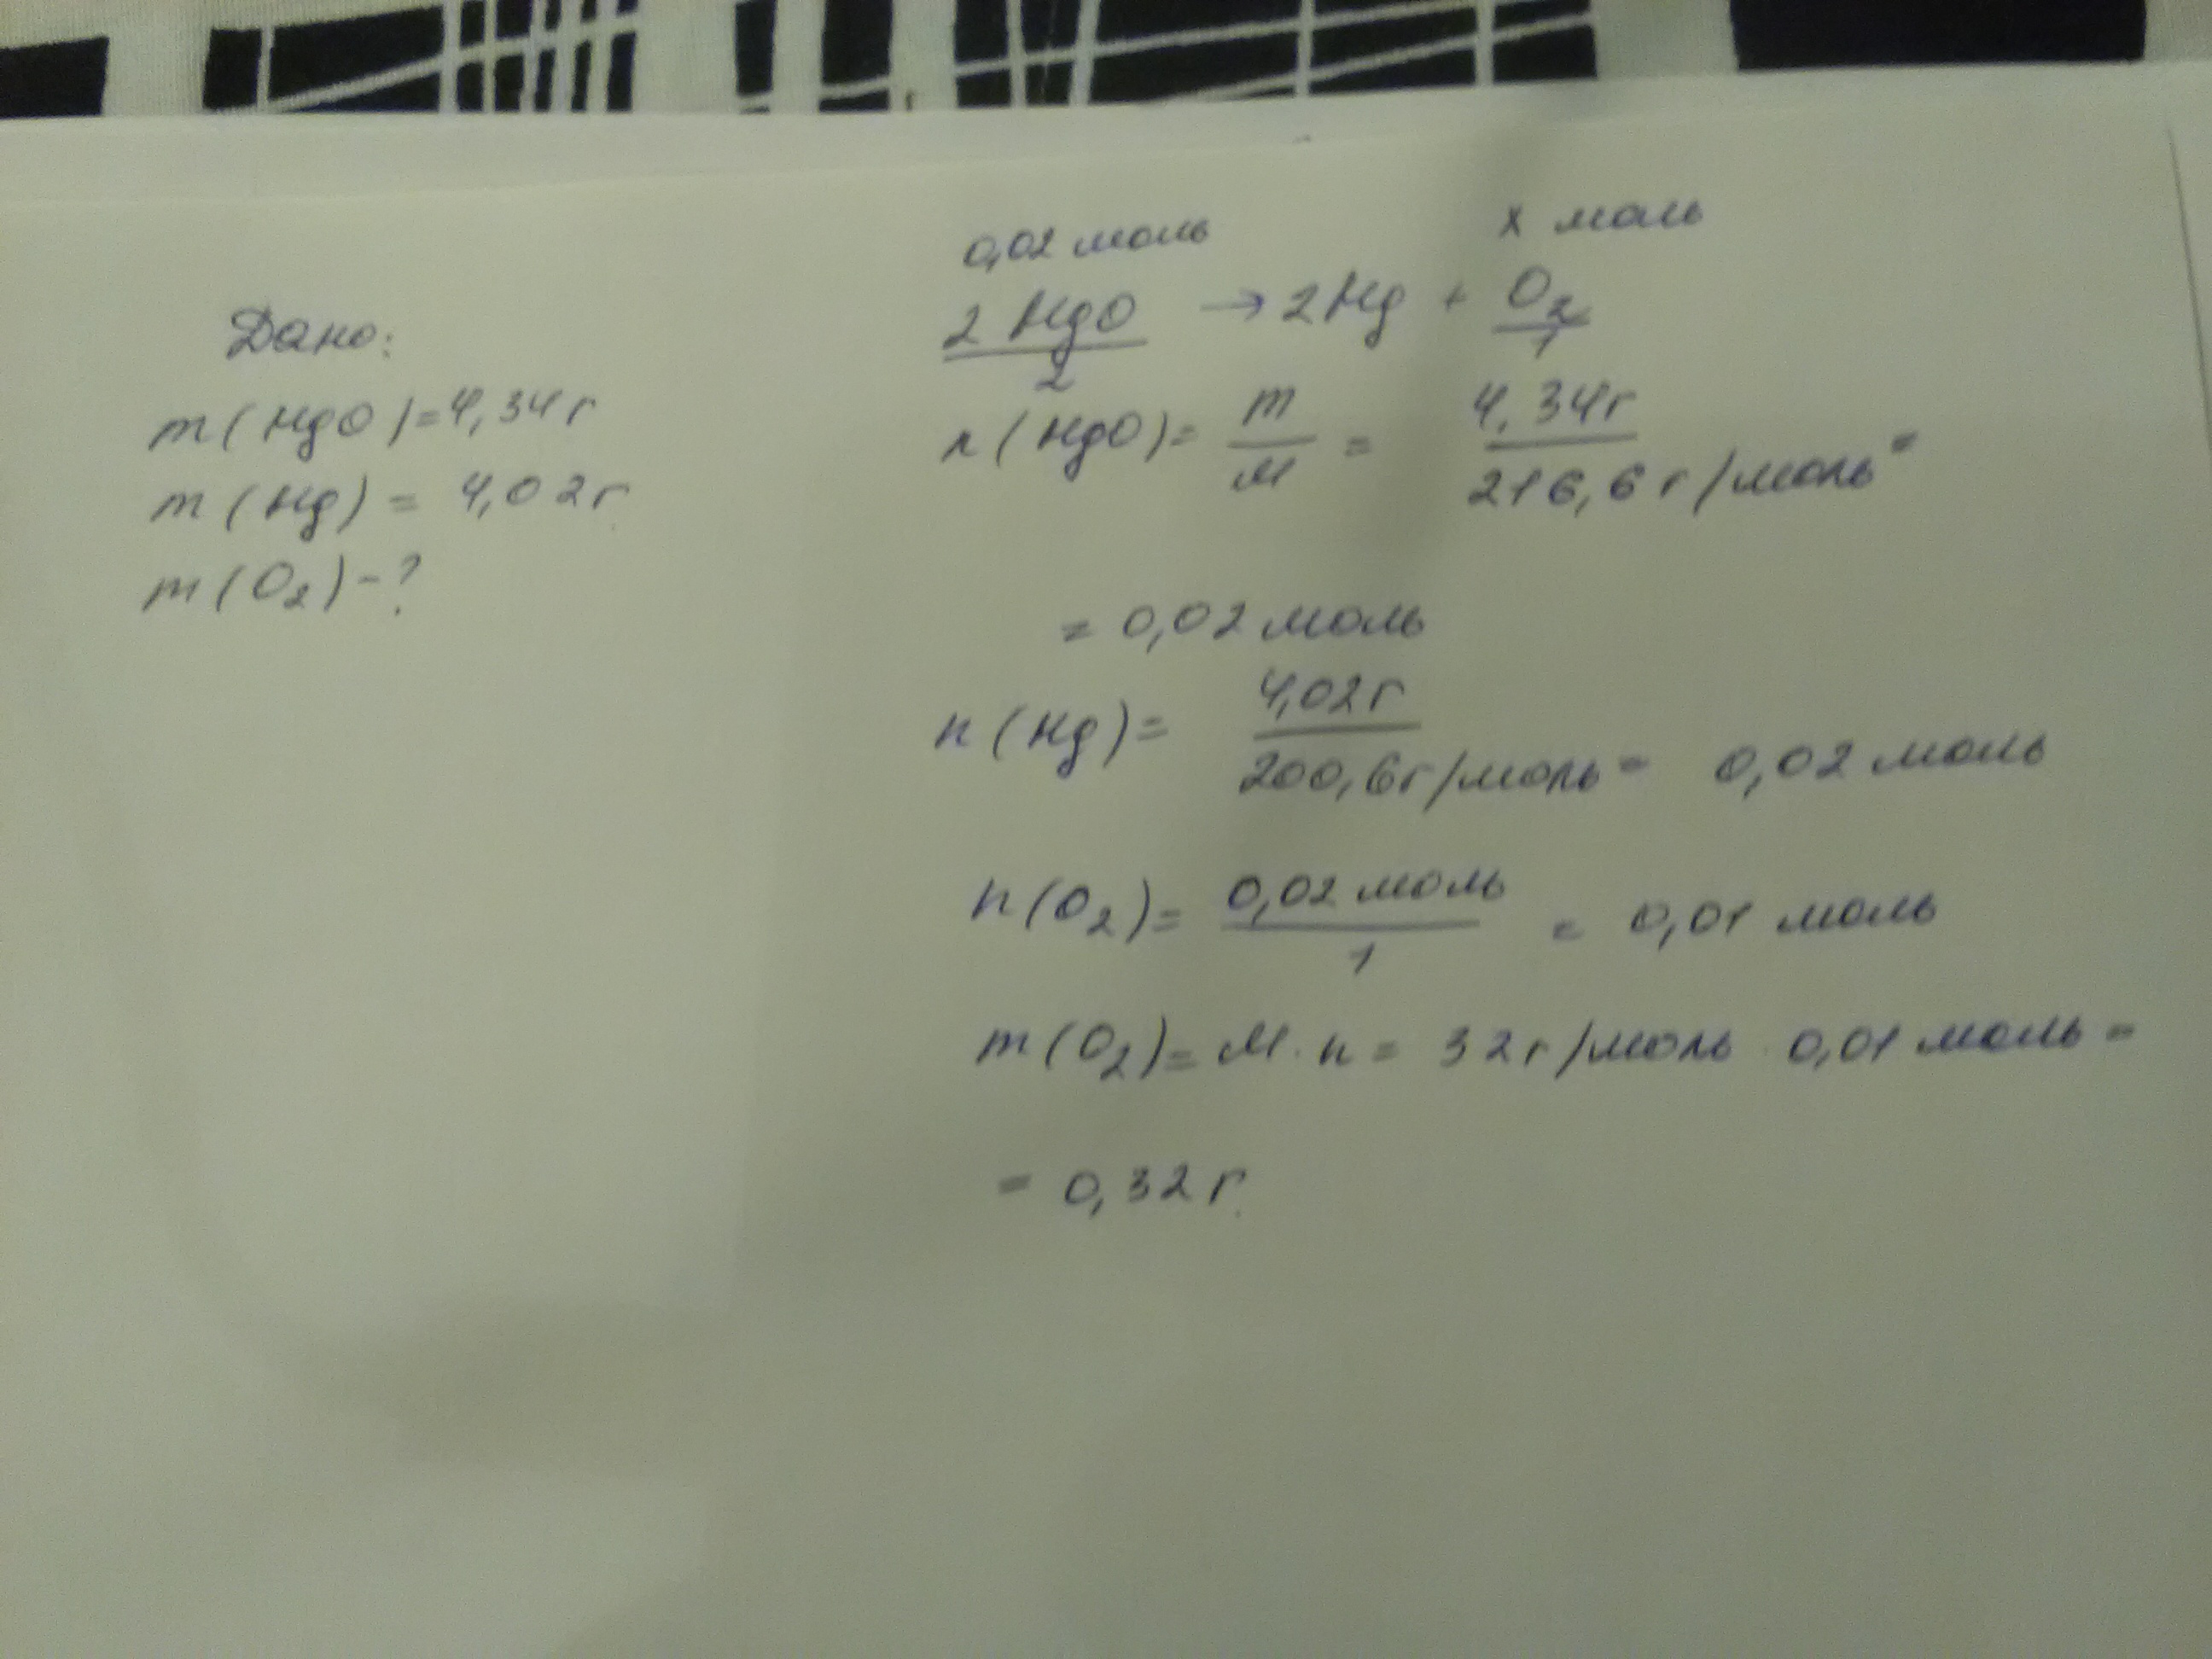 Дано:
m(HgO)=4,34г
m(Hg) = 4,02г
m(O2)-?
0,02 моль x моль
2 HgO → 2Hg + O2
2 1
n(HgO)= m/M = 4,34г/216,6 г/моль =
= 0,02 моль
n(Hg)= 4,02г/200,6г/моль = 0,02 моль
n(O2)= 0,02 моль/1 = 0,01 моль
m(O2)= M·n = 32г/моль · 0,01 моль =
= 0,32г.